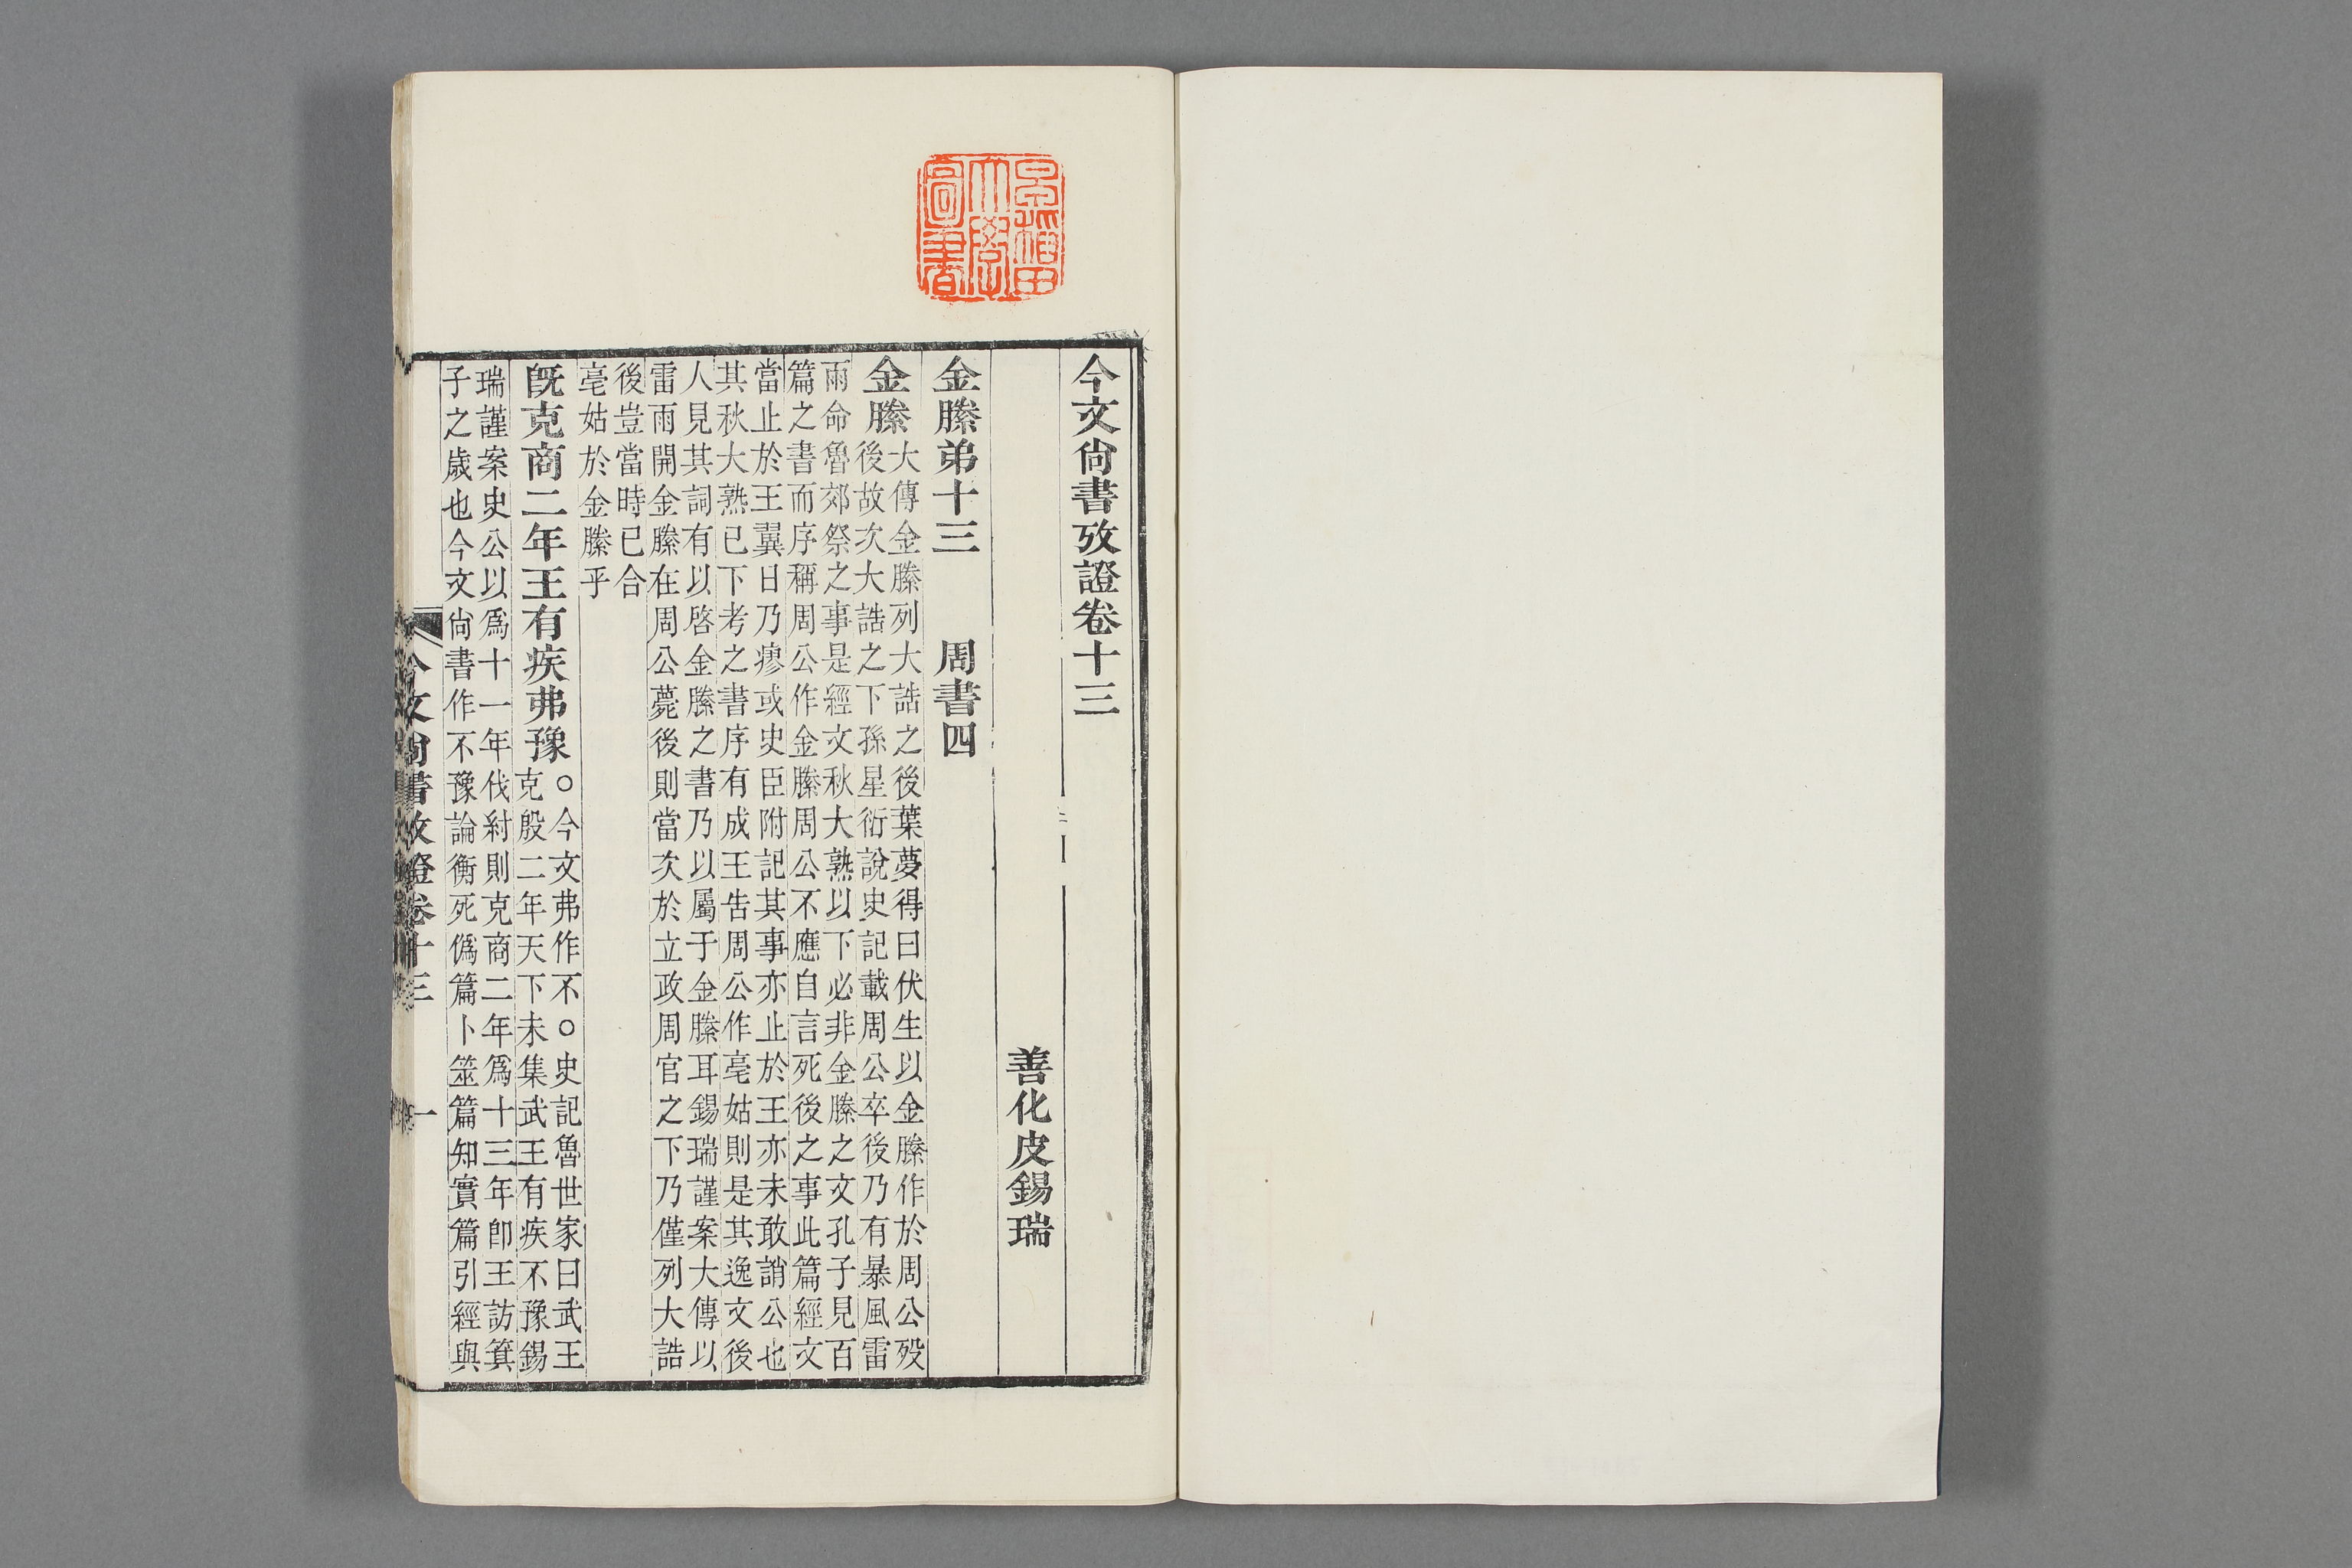 早稲田
大學
圖書
今文尙書攷證卷十三
善化皮錫瑞
金縢弟十三　周書四
金縢
大傳金縢列大誥之後葉夢得曰伏生以金縢作於周公歿
後故次大誥之下孫星衍說史記載周公卒後乃有暴風雷
雨命魯郊祭之事是經文秋大熟以下必非金縢之文孔子見百
篇之書而序稱周公作金縢周公不應自言死後之事此篇經文
當止於王翼日乃瘳或史臣附記其事亦止於王亦未敢誚公也
其秋大熟已下考之書序有成王告周公作亳姑則是其逸文後
人見其詞有以啓金縢之書乃以屬于金縢耳錫瑞謹案大傳以
雷雨開金縢在周公薨後則當次於立政周官之下乃僅列大誥
後豈當時已合
亳姑於金縢乎
旣克商二年王有疾弗豫
○今文弗作不○史記魯世家曰武王
克殷二年天下未集武王有疾不豫錫
瑞謹案史公以爲十一年伐紂則克商二年爲十三年卽王訪箕
子之歲也今文尙書作不豫論衡死僞篇卜筮篇知實篇引經與
今文尙書攷證卷十三
一